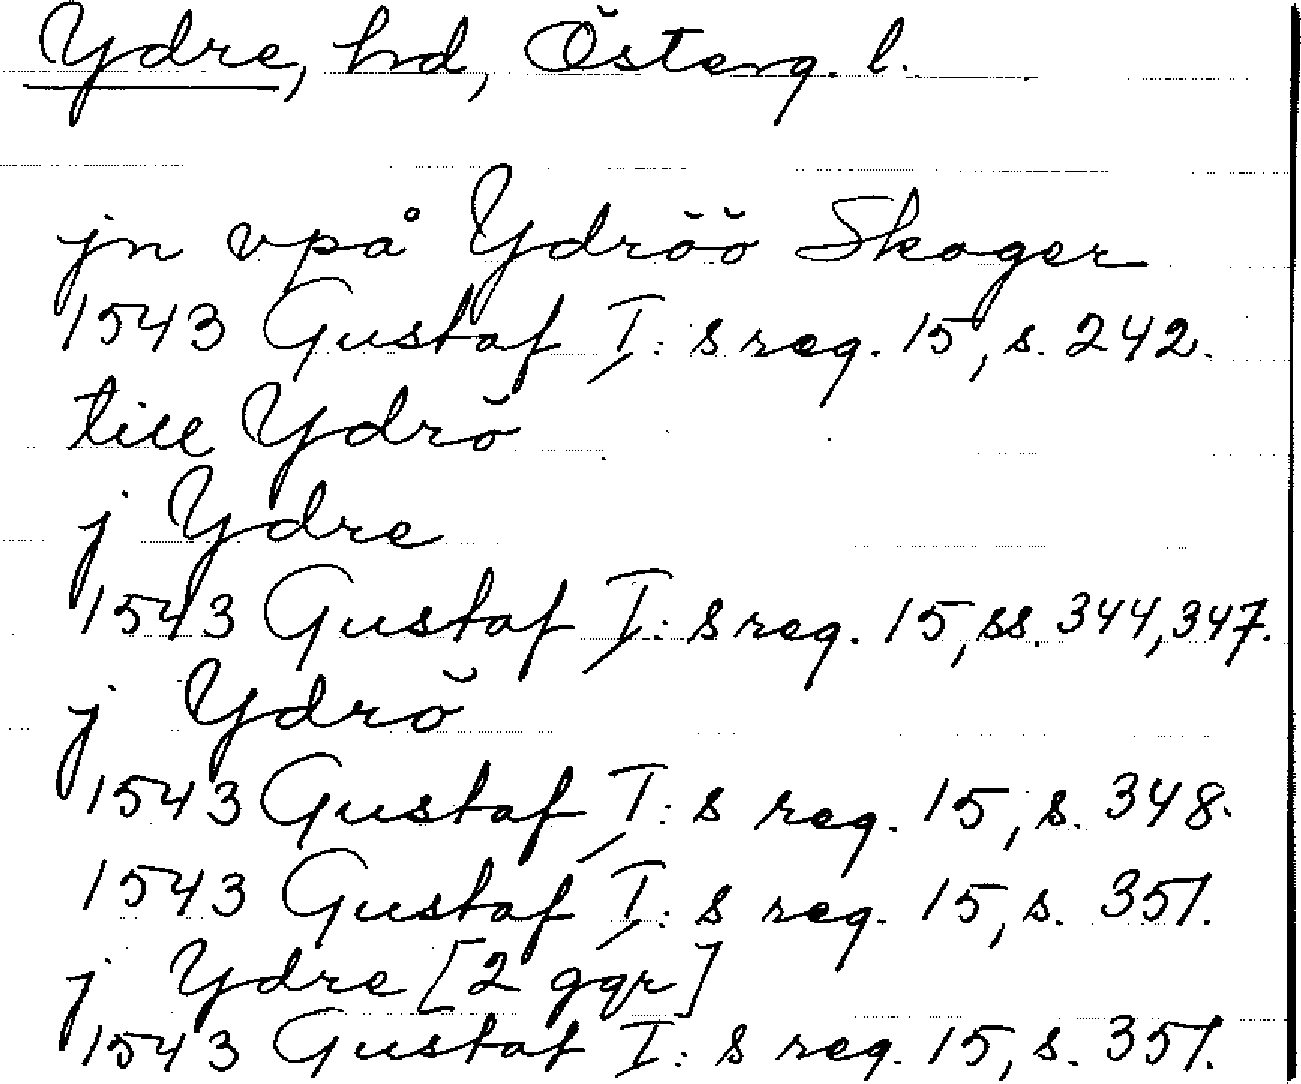 Ydre, hd, Österg. l.
jn vpå Ydröö Skoger
1543 Gustaf I:s reg. 15, s. 242.
till Ydrö
j Ydre
1543 Gustaf I:s reg. 15, ss. 344, 347.
j Ydrö
1543 Gustaf I:s reg. 15, s. 348.
1543 Gustaf I:s reg. 15, s. 351.
j Ydre [2 ggr]
1543 Gustaf I:s reg. 15, s. 351.